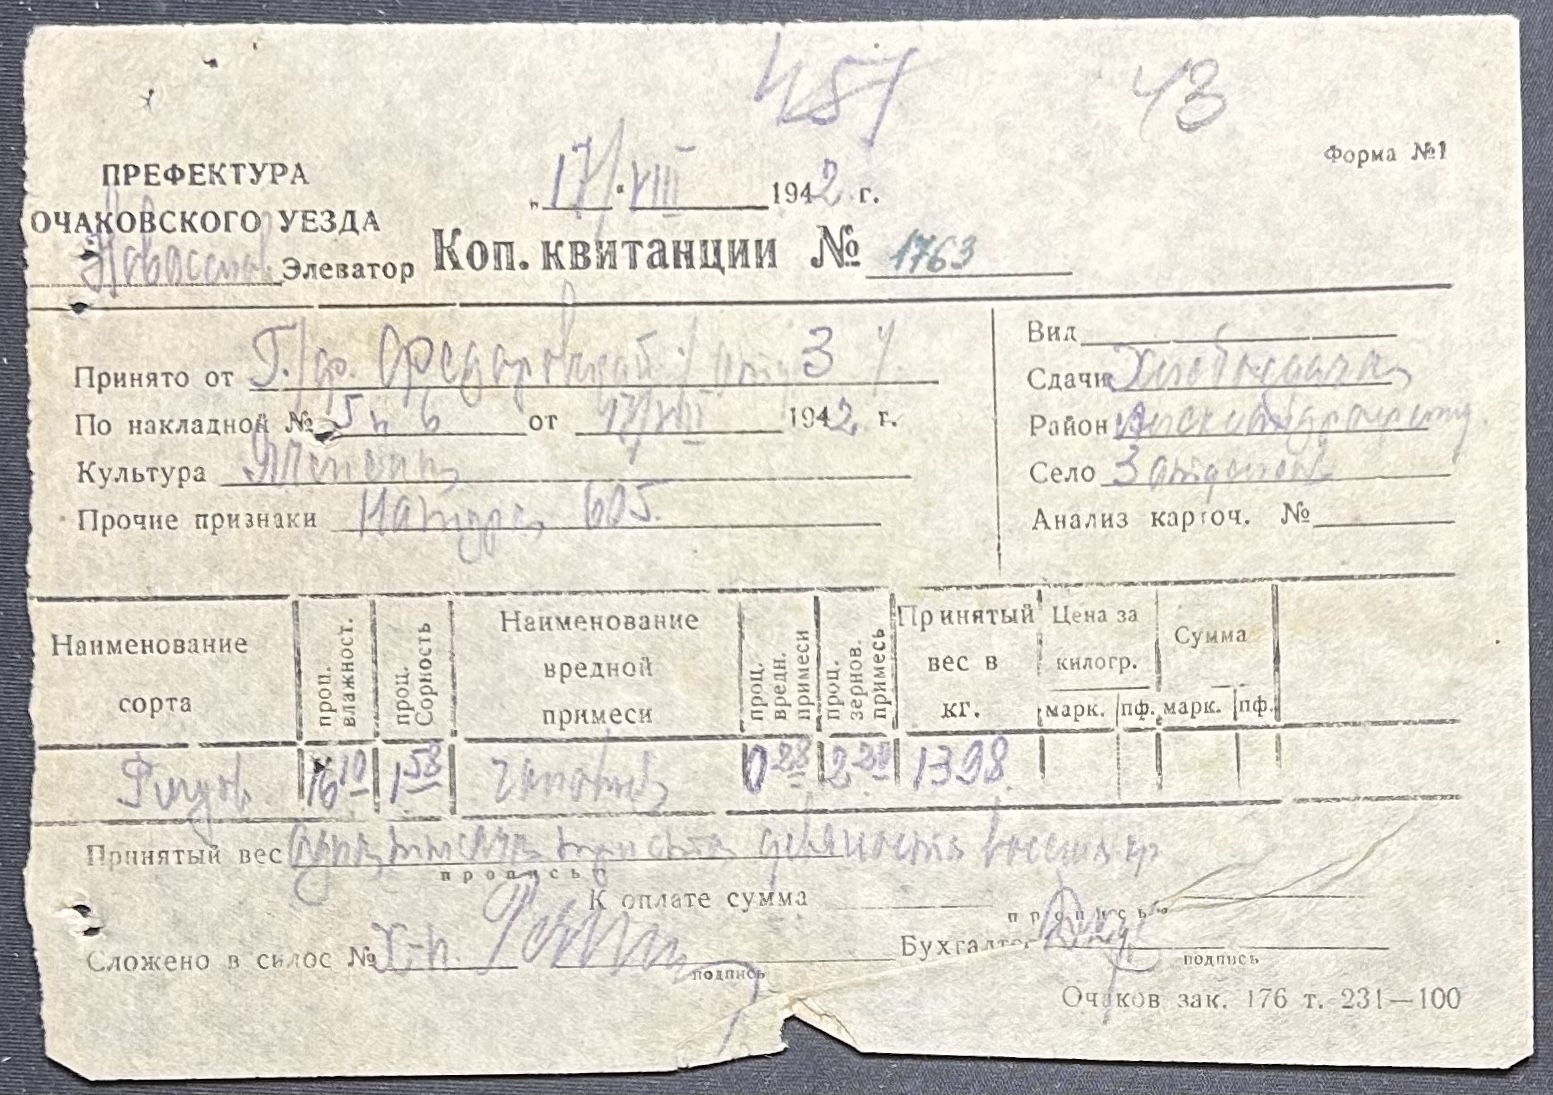 451 43
Форма №1
ПРЕФЕКТУРА
ОЧАКОВСКОГО УЕЗДА
„17“ VIII 1942 г.
Элеватор
Коп. квитанции № 1763
Принято от 3
Вид
Сдачи
По накладной № 5 и 6 от 17/VIII 1942 г.
Район
Культура
Село
Прочие признаки Натура 605.
Анализ карточ. №
Наименование сорта
проц. влажност.
проц. Сорность
Наименование вредной примеси
проц. вредн. примеси
проц. зернов. примесь
Принятый вес в кг.
Цена за килогр.
Сумма
марк. пф. марк. пф.
16 10 1 58 0 28 2 20 1398
Принятый вес одна тысяча триста девяносто восемь кг
прописью
К оплате сумма
прописью
Сложено в силос №
подпись
Бухгалтер
подпись
Очаков зак. 176 т. 231—100